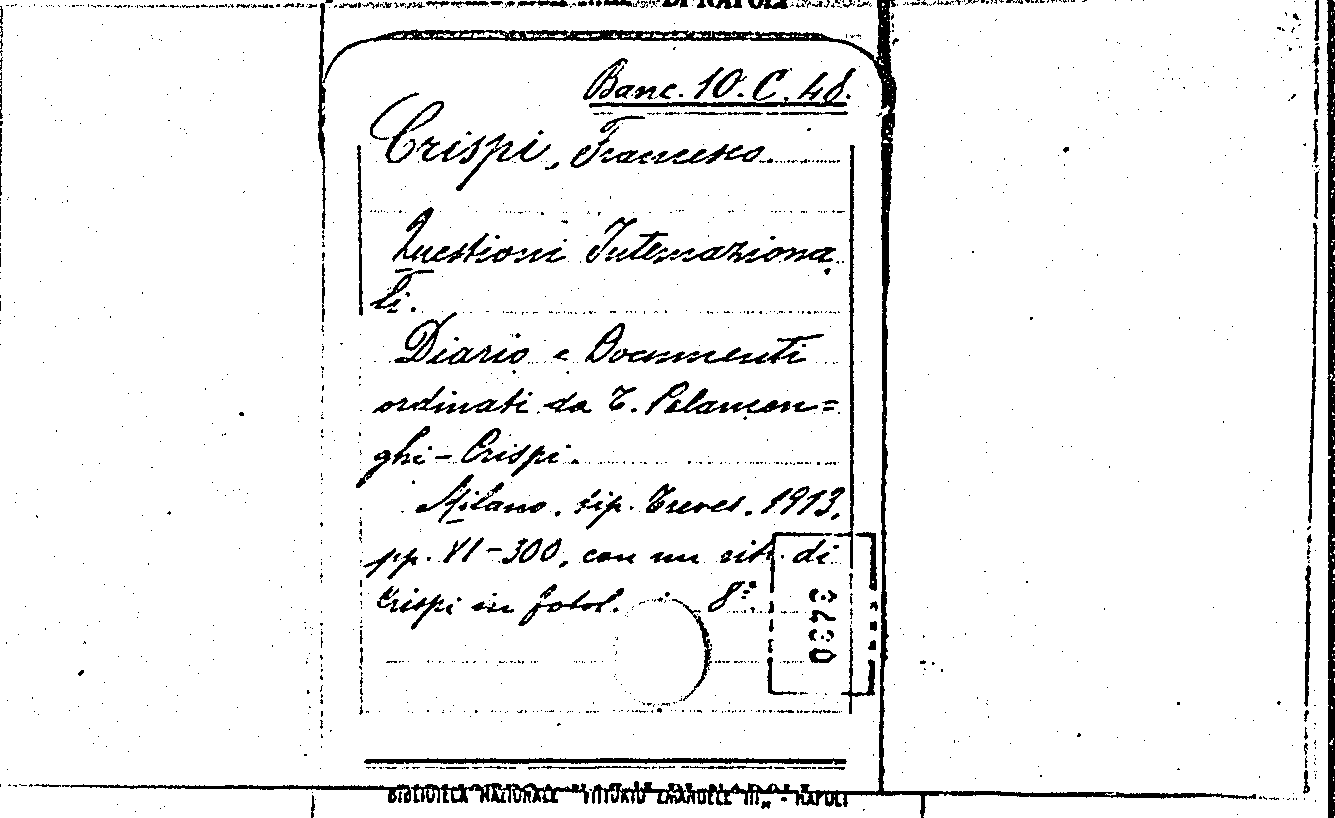 DI NAPOLI
Banc. 10. C. 48.
Crispi, Francesco.
Questioni Internaziona
li.
Diario e Documenti
ordinati da T. Palamen=
ghi-Crispi.
Milano, tip. Treves, 1913,
pp. XI-300, con un ritr. di
Crispi in fotol. 8º.
BIBLIOTECA NAZIONALE "VITTORIO EMANUELE III" - NAPOLI